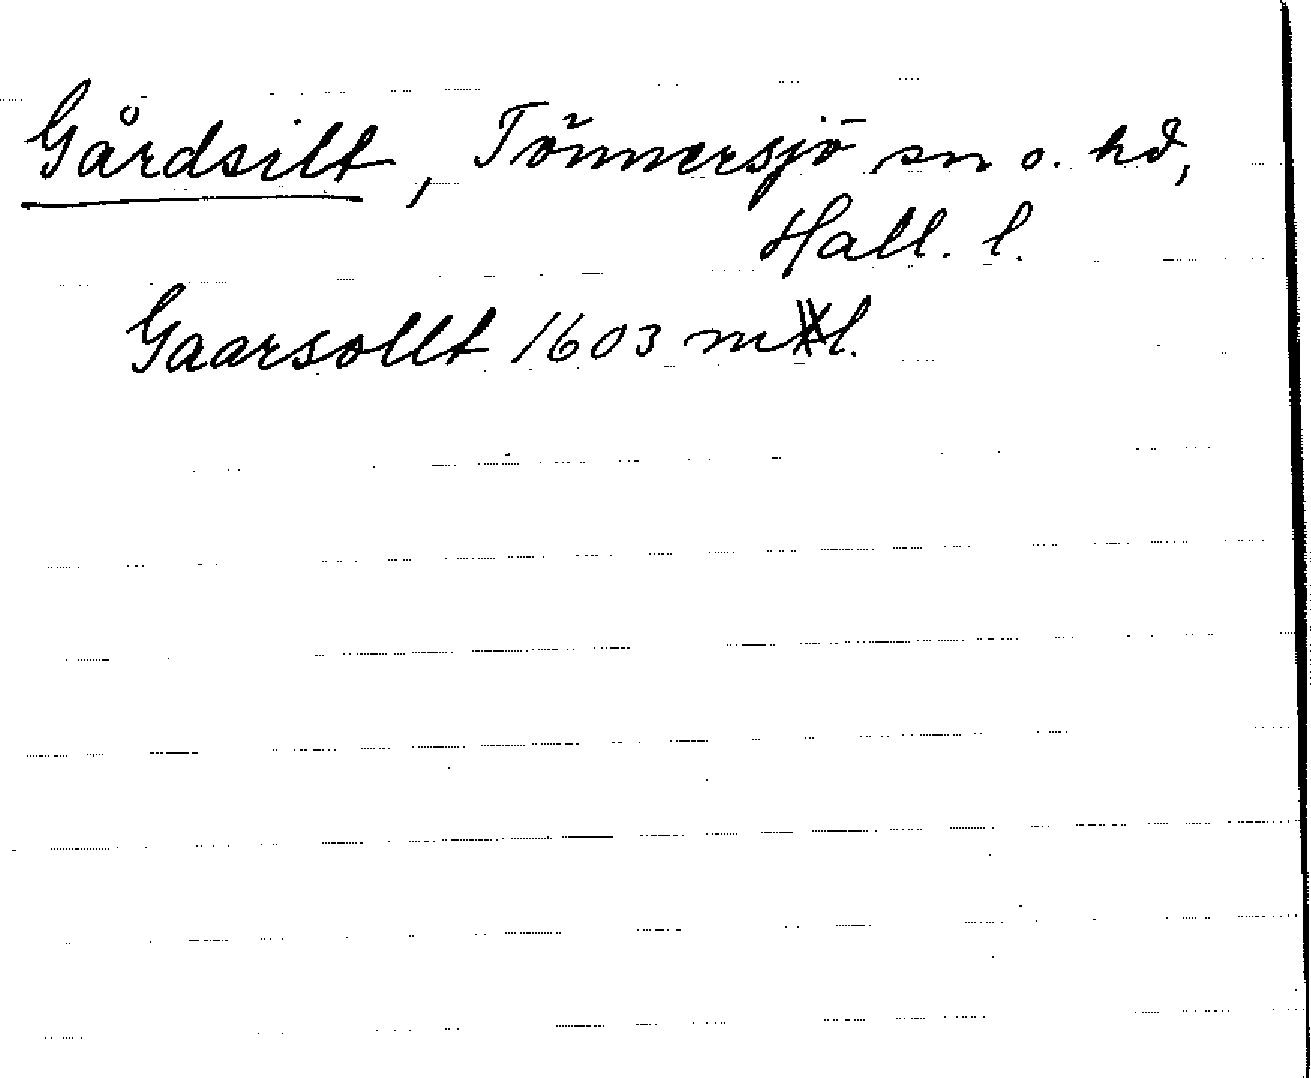 Gårdsilt, Tönnersjö sn o. hd,
Hall. l.
Gaarsollt 1603 ml.